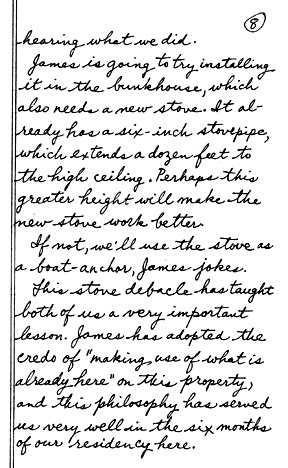 8
hearing what we did.
James is going to try installing
it in the bunkhouse, which
also needs a new stove. It al-
ready has a six-inch stovepipe,
which extends a dozen feet to
the high ceiling. Perhaps this
greater height will make the
new stove work better.
If not, we'll use the stove as
a boat-anchor, James jokes.
This stove debacle has taught
both of us a very important
lesson. James has adopted the
credo of "making use of what is
already here" on this property,
and this philosophy has served
us very well in the six months
of our residency here.